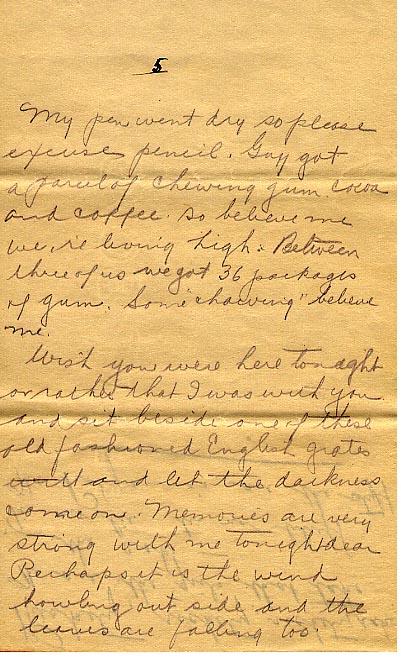 5
My pen went dry so please
excuse pencil. Guy got
a parcel of chewing gum cocoa
and coffee. so believe me
we're living high. Between
three of us we got 36 packages
of gum. Some "chawing" believe
me.
Wish you were here tonight
or rather that I was with you
and sit beside one of these
old fashioned English grates
and let the darkness
come on. Memories are very
strong with me tonight dear
Perhaps it is the wind
howling out side and the
leaves are falling too.